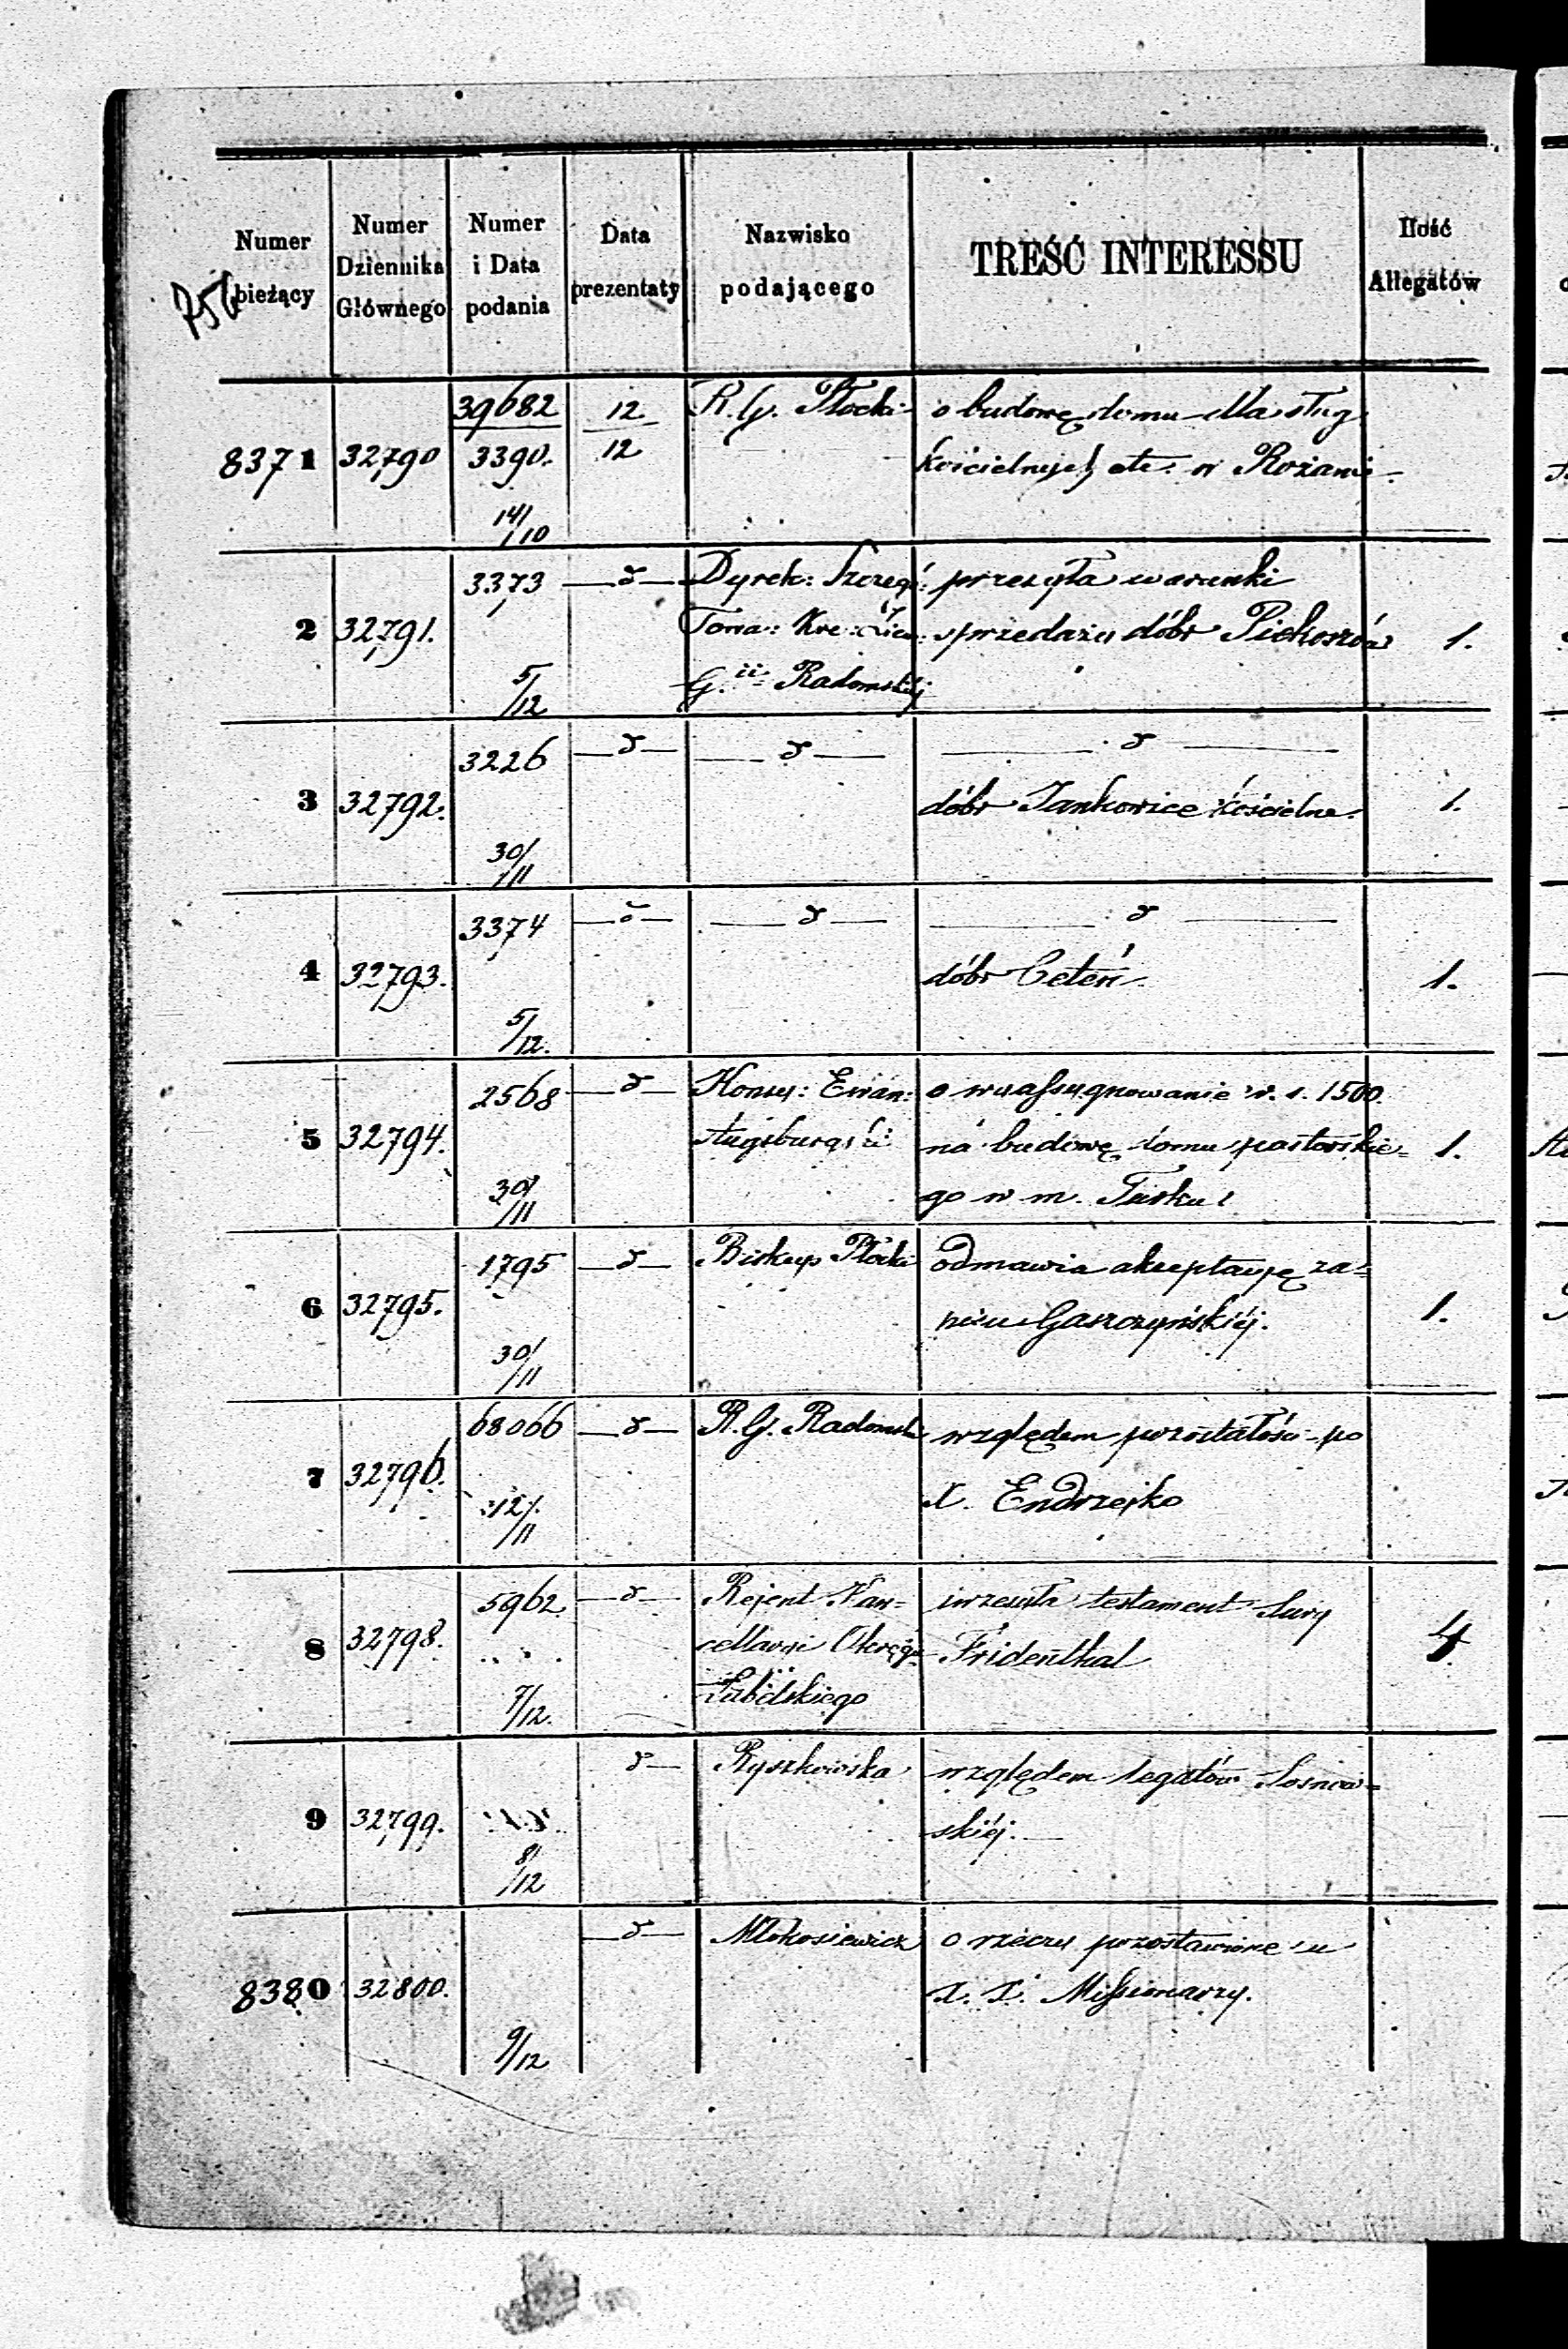 Numer bieżący
Numer Dziennika Głównego
Numer i Data podania
Data prezentaty
Nazwisko podającego
TREŚĆ INTERESSU
Ilość Allegatów
8371 32790 39682 12 R. G. Płocki o budowę domu dla sług
3390. 12 kościelnych etc. w Rożanie
14/10
2 32791. 3373 —d— Dyrek: Szczegó: przesyła warunki
Towa: Kre: Ziem: sprzedaży dóbr Piekoszów 1.
5/12 G.ii Radomskiéj
3 32792. 3226 —d— —d— —d—
dóbr Jankowice Kościelne. 1.
30/11
4 32793. 3374 —d— —d— —d—
dóbr Ceteń 1.
5/12.
5 32794. 2568 —d— Konsy: Ewan: o wyassygnowanie r. s. 1500.
Augsburgski na budowę domu pastorskie= 1.
30/11 go w m. Turku
6 32795. 1795 —d— Biskup Płocki odmawia akceptację za=
pisu Gaszczyńskiéj. 1.
30/11
7 32796. 68066 —d— R. G. Radomski względem pozostałości po
X. Endrzejko
12/11
8 32798. 5962 —d— Rejent Kan= przesyła testament Sury
cellaryi Okręgu Fridenthal 4
7/12. Lubelskiego
9 32799. —d— Ryszkowska względem legatów Sosnow=
skiéj.—
8/12
8380 32800. —d— Młokosiewicz o rzeczy pozostawione u
X. X. Missionarzy.
9/12